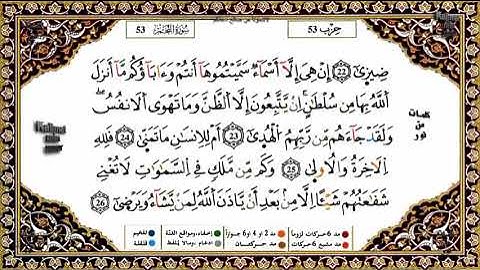 حزب 53
سورة النجم
53
ضِيزَىٰ 22 إِنْ هِيَ إِلَّا أَسْمَاءٌ سَمَّيْتُمُوهَا أَنتُمْ وَءَابَاؤُكُم مَّا أَنزَلَ
اللَّهُ بِهَا مِن سُلْطَٰنٍ إِن يَتَّبِعُونَ إِلَّا الظَّنَّ وَمَا تَهْوَى الْأَنفُسُ
وَلَقَدْ جَاءَهُم مِّن رَّبِّهِمُ الْهُدَىٰ 23 أَمْ لِلْإِنسَٰنِ مَا تَمَنَّىٰ 24 فَلِلَّهِ
الْأَخِرَةُ وَالْأُولَىٰ 25 وَكَم مِّن مَّلَكٍ فِي السَّمَٰوَٰتِ لَا تُغْنِي
شَفَٰعَتُهُمْ شَيْـًٔا إِلَّا مِن بَعْدِ أَن يَأْذَنَ اللَّهُ لِمَن يَشَاءُ وَيَرْضَىٰ 26
كلمات
من
نور
مد 6 حركات لزوما
مد 2 او 4 او 6 جوازا
إخفاء، ومواقع الغنة
تفخيم
مد مشبع 6 حركات
مد حركتان
ادغام، وما لا يلفظ
قلقلة